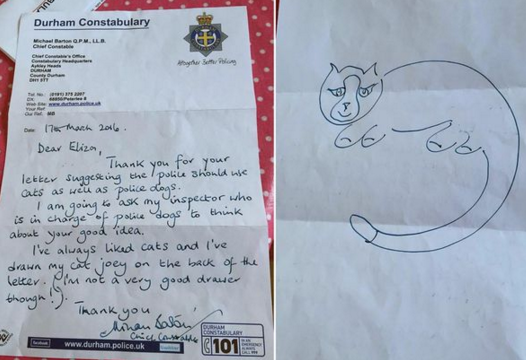 Durham Constabulary
Michael Barton Q.P.M, LL.B.
Chief Constable
Altogether Better Policing
Chief Constable's Office
Constabulary Headquarters
Aykley Heads
DURHAM
County Durham
DH1 5TT
Tel. No: (0191) 375 2207
Web Site: www.durham.police.uk
Your Ref:
Our Ref: MB
Date: 17th March 2016.
Dear Eliza,
Thank you for your
letter suggesting the police should use
cats as well as police dogs.
I am going to ask my inspector who
is in charge of police dogs to think
about your good idea.
I've always liked cats and I've
drawn my cat joey on the back of the
letter. (I'm not a very good drawer
though!).
Thank you
Chief Constable
facebook
www.durham.police.uk
DURHAM
CONSTABULARY
101
IN AN
EMERGENCY
ALWAYS
CALL 999